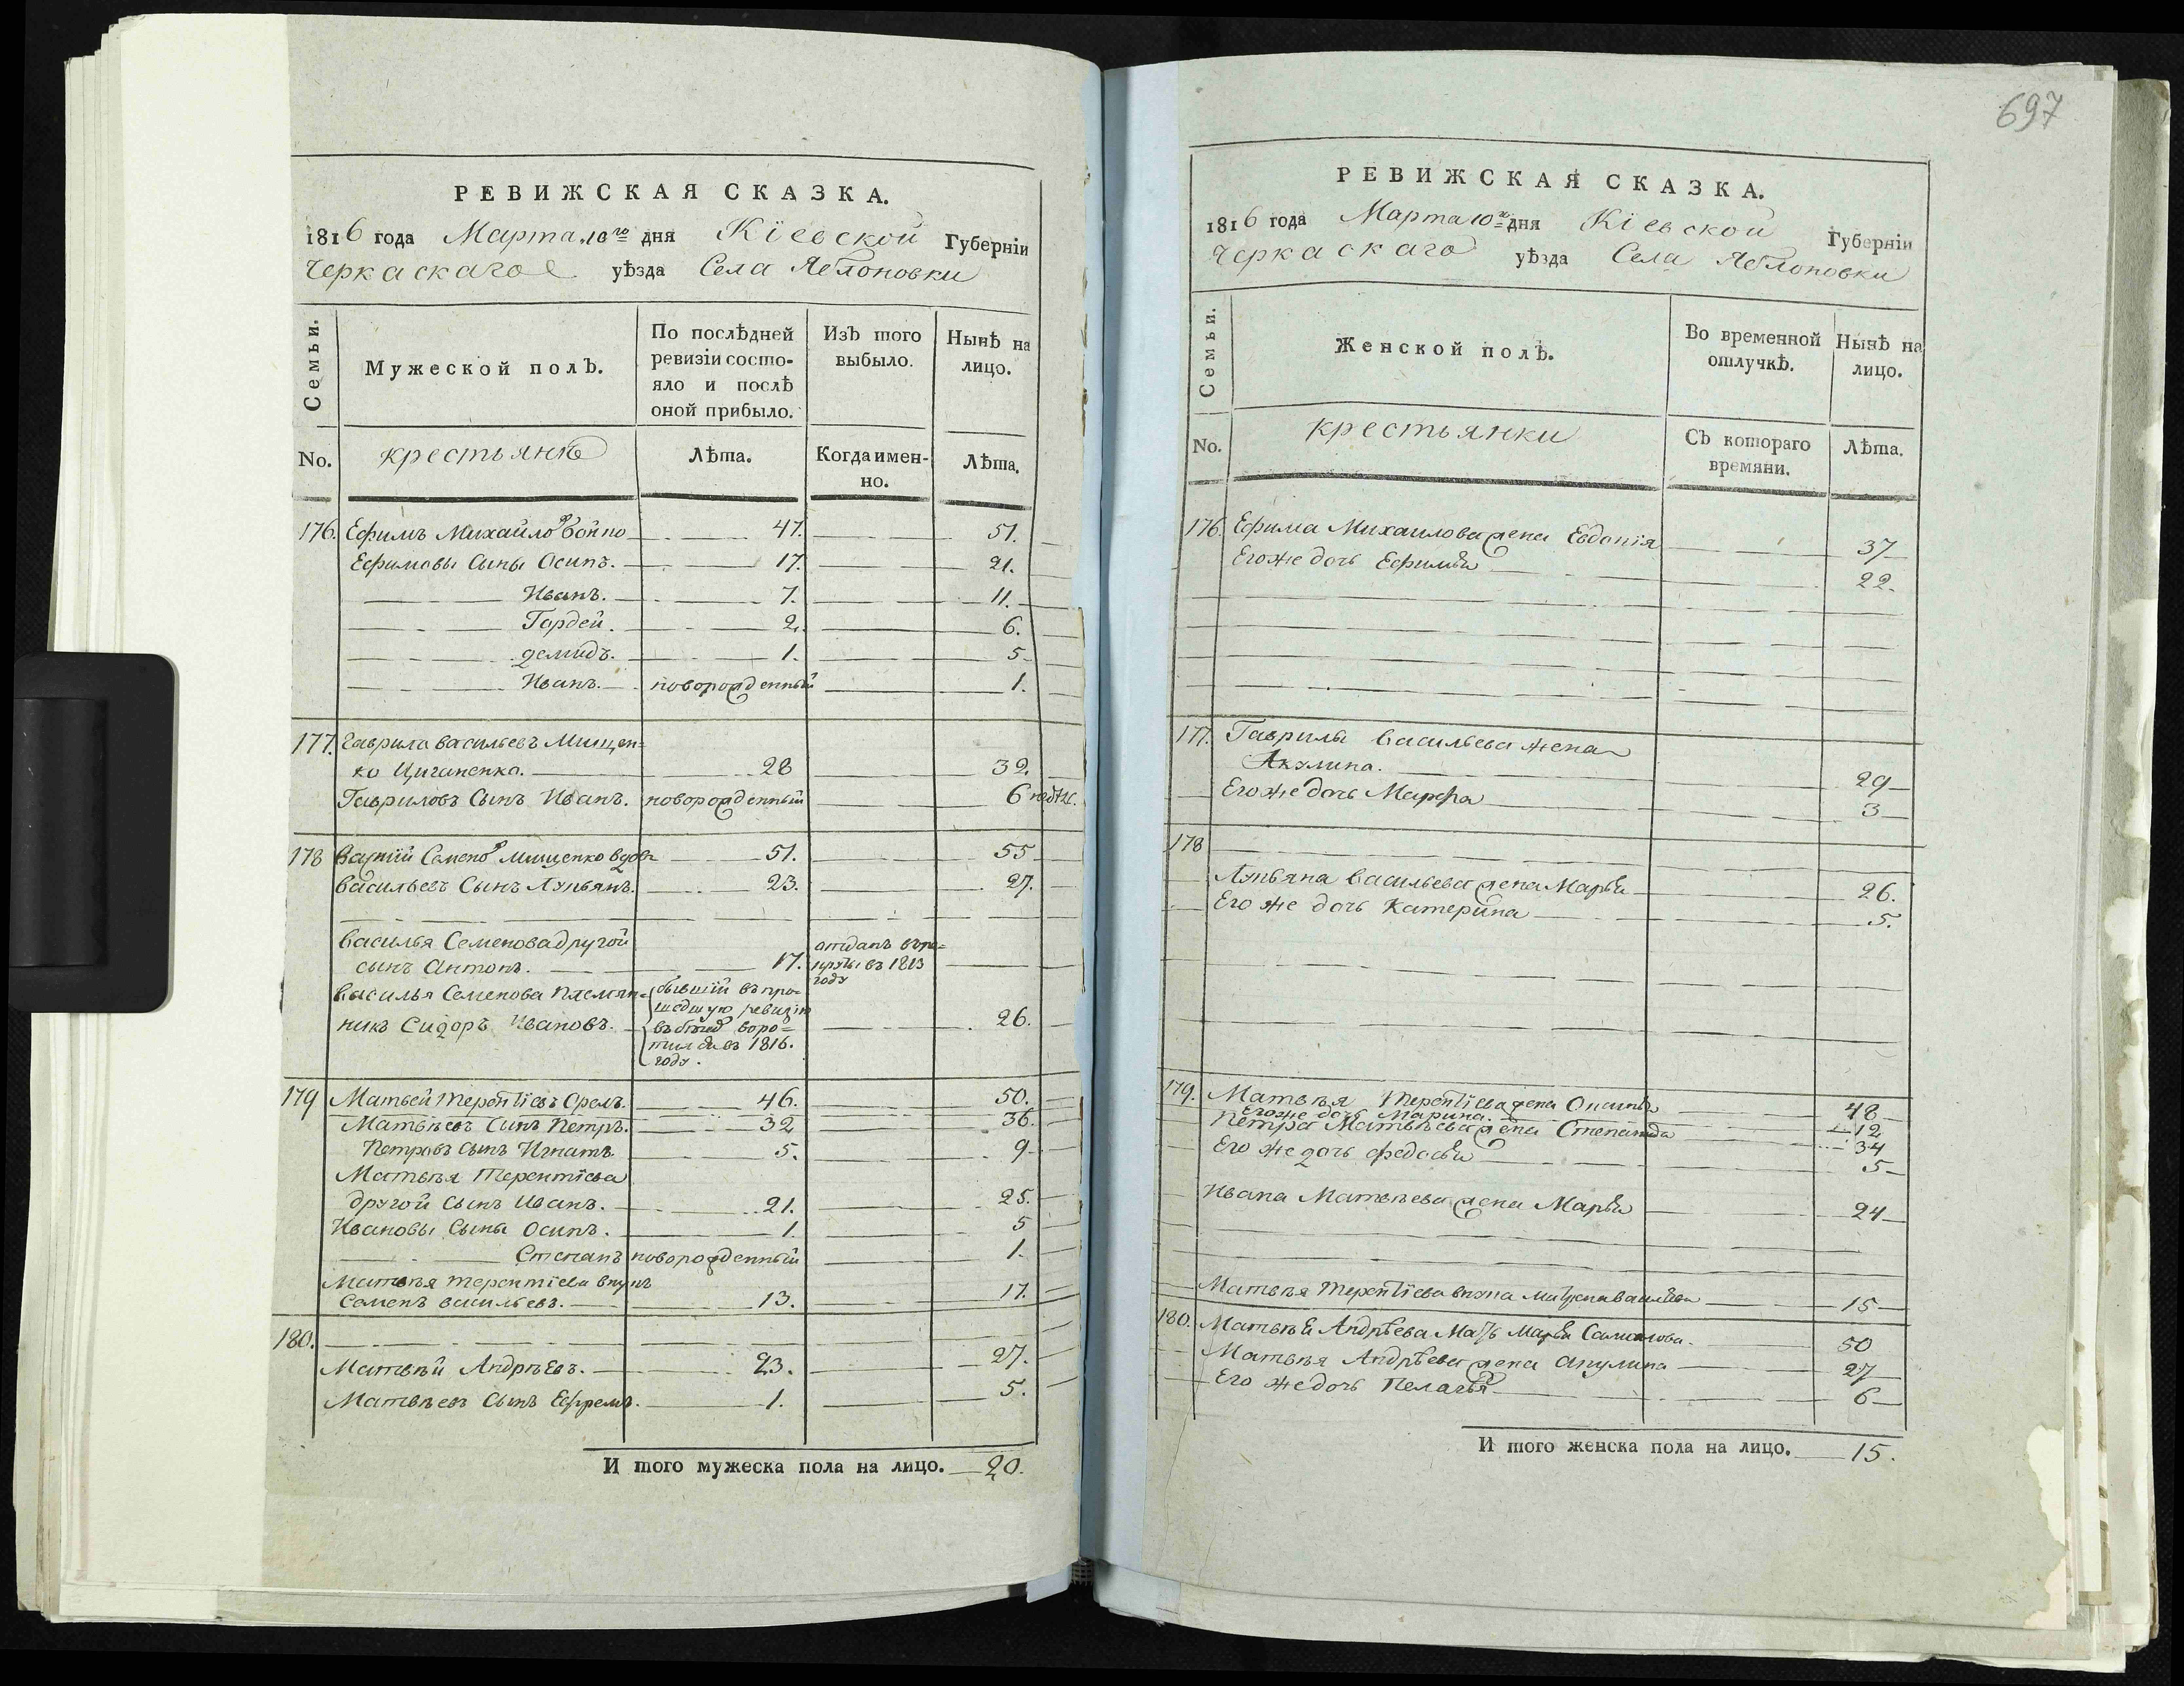 РЕВИЖСКАЯ СКАЗКА.
1816 года Марта 10го дня Кіевской Губерніи
Черкаскаго уѣзда Села Яблоновки
Семьи.
Мужеской полЪ.
По послѣдней
ревизіи состо-
яло и послѣ
оной прибыло.
ИзЪ того
выбыло.
Нынѣ на
лицо.
No.
крестьянъ
Лѣта.
Когда имен-
но.
Лѣта.
176. Ефимъ Михайлов 47. 51.
Ефимовы Сыны Осипъ. 17. 21.
Иванъ. 7. 11.
Гордей. 2. 6.
Демидъ. 1. 5
Иванъ. новорожденный 1.
177. Гаврило Васильевъ Мищен=
ко Циганенко. 28 32.
Гавриловъ Сынъ Иванъ. новорожденный 6 недѣль.
178 Семенов Мищенко вдовъ 51. 55
Васильевъ Сынъ Лукьянъ. 23. 27.
Василья Семенова другой
сынъ Антонъ. 17.
отданъ въ ре=
круты въ 1813
году
Василья Семенова племян=
никъ Сидоръ Ивановъ. 26.
бывшій въ про=
шедшую ревизію
въ бѣгах воро=
тился въ 1816.
году.
179 Матвей Терентіевъ Орелъ. 46. 50.
Матвѣевъ Сынъ Петръ. 32 36.
Петровъ Сынъ Игнатъ. 5. 9
Матвѣя Терентіева
другой Сынъ Иванъ. 21. 25.
Ивановы Сыны Осипъ. 1. 5
Степанъ новорожденный 1.
Матвѣя Терентіева внукъ
Семенъ Васильевъ. 13. 17.
180.
Матвѣй Андрѣевъ. 23. 27.
Матвѣевъ Сынъ Ефремъ. 1. 5.
И того мужеска пола на лицо. 20.
697
РЕВИЖСКАЯ СКАЗКА.
1816 года Марта 10го дня Кіевской Губерніи
Черкаскаго уѣзда Села Яблоновки
Семьи.
Женской полЪ.
Во временной
отлучкѣ.
Нынѣ на
лицо.
No.
крестьянки
СЪ котораго
времяни.
Лѣта.
176. Ефима Михаилова жена Евдокія 37
Его же дочь Ефимья 22.
177. Гаврилы Васильева жена
Акулина. 29
Его же дочь Марфа 3
178
Лукьяна Васильева жена Марья 26.
Его же дочь Катерина 5.
179. Матвѣя Терентіева жена 48
Его же дочь Марина. 12
Петра Матвѣева жена Степанида 34
Его же дочь Федосья 5
Ивана Матвѣева жена Марья 24
Матвѣя Терентіева внука Васильева 15
180. Матвѣя Андрѣева Мать Марья Самойлова. 50
Матвѣя Андрѣева жена Акулина 27
Его же дочь Пелагѣя 6
И того женска пола на лицо. 15.